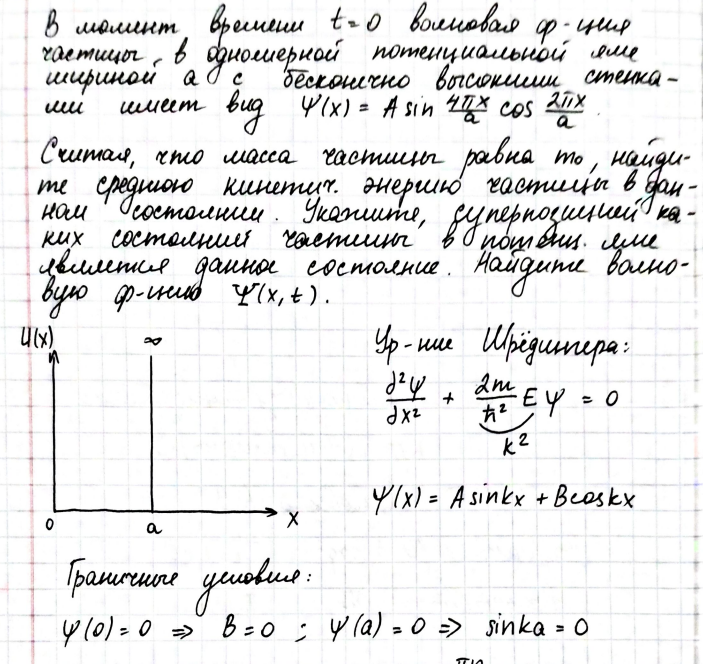 В момент времени t=0 волновая ф-ция
частицы в одномерной потенциальной яме
шириной a с бесконечно высокими стенка-
ми имеет вид Ψ(x) = A sin 4πx/a cos 2πx/a.
Считая, что масса частицы равна m₀, найди-
те среднюю кинетич. энергию частицы в дан-
ном состоянии. Укажите, суперпозицией ка-
ких состояний частицы в потенц. яме
является данное состояние. Найдите волно-
вую ф-цию Ψ(x,t).
U(x) ∞
0 a x
Ур-ние Шрёдингера:
∂²Ψ/∂x² + 2m/ħ² E Ψ = 0
k²
Ψ(x) = A sinkx + B coskx
Граничные условия:
Ψ(0) = 0 ⇒ B = 0 ; Ψ(a) = 0 ⇒ sinka = 0